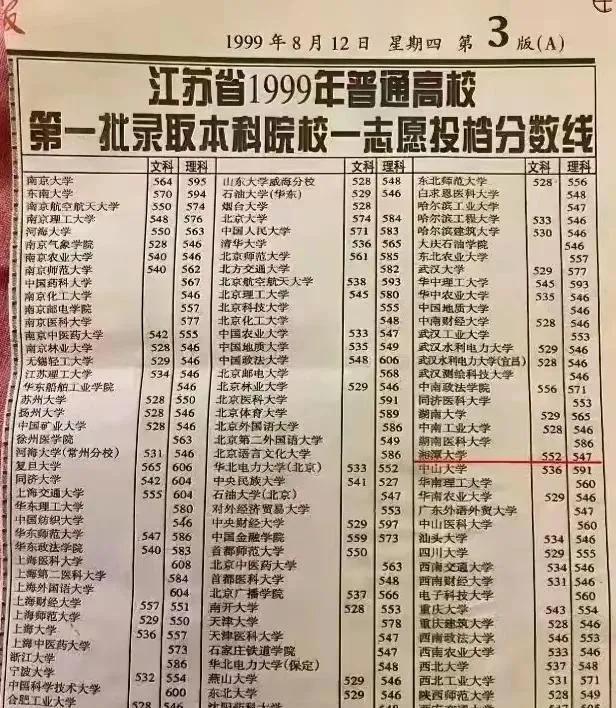 1999年8月12日 星期四 第3版(A)
江苏省1999年普通高校
第一批录取本科院校一志愿投档分数线
文科 理科
南京大学 564 595
东南大学 570 594
南京航空航天大学 550 574
南京理工大学 548 576
河海大学 550 563
南京气象学院 528 546
南京农业大学 540 546
南京师范大学 540 562
中国药科大学 567
南京化工大学 546
南京邮电学院 557
南京医科大学 577
南京中医药大学 542 555
南京林业大学 528 546
无锡轻工大学 529 546
江苏理工大学 534 546
华东船舶工业学院 546
苏州大学 528 550
扬州大学 528 546
中国矿业大学 528 546
徐州医学院 563
河海大学(常州分校) 531 546
复旦大学 565 606
同济大学 542 604
上海交通大学 555 604
华东理工大学 580
中国纺织大学 546
华东师范大学 547 586
华东政法学院 540 583
上海医科大学 608
上海第二医科大学 584
上海外国语大学 604
上海财经大学 557 551
上海师范大学 529 550
上海大学 536 557
上海中医药大学 573
浙江大学 586
宁波大学 532 554
中国科学技术大学 600
合肥工业大学 528 546
文科 理科
山东大学威海分校 528 548
石油大学(华东) 529 546
烟台大学 528
北京大学 574 584
中国人民大学 571 583
清华大学 536 565
北京师范大学 561 585
北方交通大学 582
北京航空航天大学 538 593
北京理工大学 545 580
北京科技大学 555
北京化工大学 546
中国农业大学 533 547
中国地质大学 535 549
中国政法大学 548 606
北京邮电大学 568
北京林业大学 529 546
北京医科大学 591
北京体育大学 589
北京外国语大学 586
北京第二外国语大学 549
北京语言文化大学 586
华北电力大学(北京) 533 552
中央民族大学 541 527
石油大学(北京) 548
对外经济贸易大学 553
中央财经大学 529 597
中国金融学院 559 573
首都师范大学 550
北京中医药大学 563
首都医科大学 548
北京广播学院 566
南开大学 528 553
天津大学 578
天津医科大学 547
石家庄铁道学院 546
华北电力大学(保定) 548
燕山大学 529 546
东北大学 529 546
文科 理科
东北师范大学 528 556
白求恩医科大学 548
哈尔滨工业大学 547
哈尔滨工程大学 533 546
哈尔滨建筑大学 530 546
大庆石油学院 546
东北农业大学 557
武汉大学 529 577
华中理工大学 545 593
华中农业大学 535 546
中国地质大学 546
中南财经大学 528 546
武汉工业大学 553
武汉水利电力大学 529 546
武汉水利电力大学(宜昌) 528 546
武汉测绘科技大学 546
中南政法学院 556 571
同济医科大学 553
湖南大学 529 565
中南工业大学 528 546
湖南医科大学 586
湘潭大学 552 547
中山大学 536 591
华南理工大学 560
华南农业大学 529 546
广东外语外贸大学 547
中山医科大学 560
汕头大学 534 546
四川大学 529 555
西南交通大学 534 546
西南财经大学 531 546
电子科技大学 560
重庆大学 543 554
重庆建筑大学 528 546
西南政法大学 546 553
西南农业大学 528 546
西北大学 537 548
西北工业大学 546
陕西师范大学 528 549